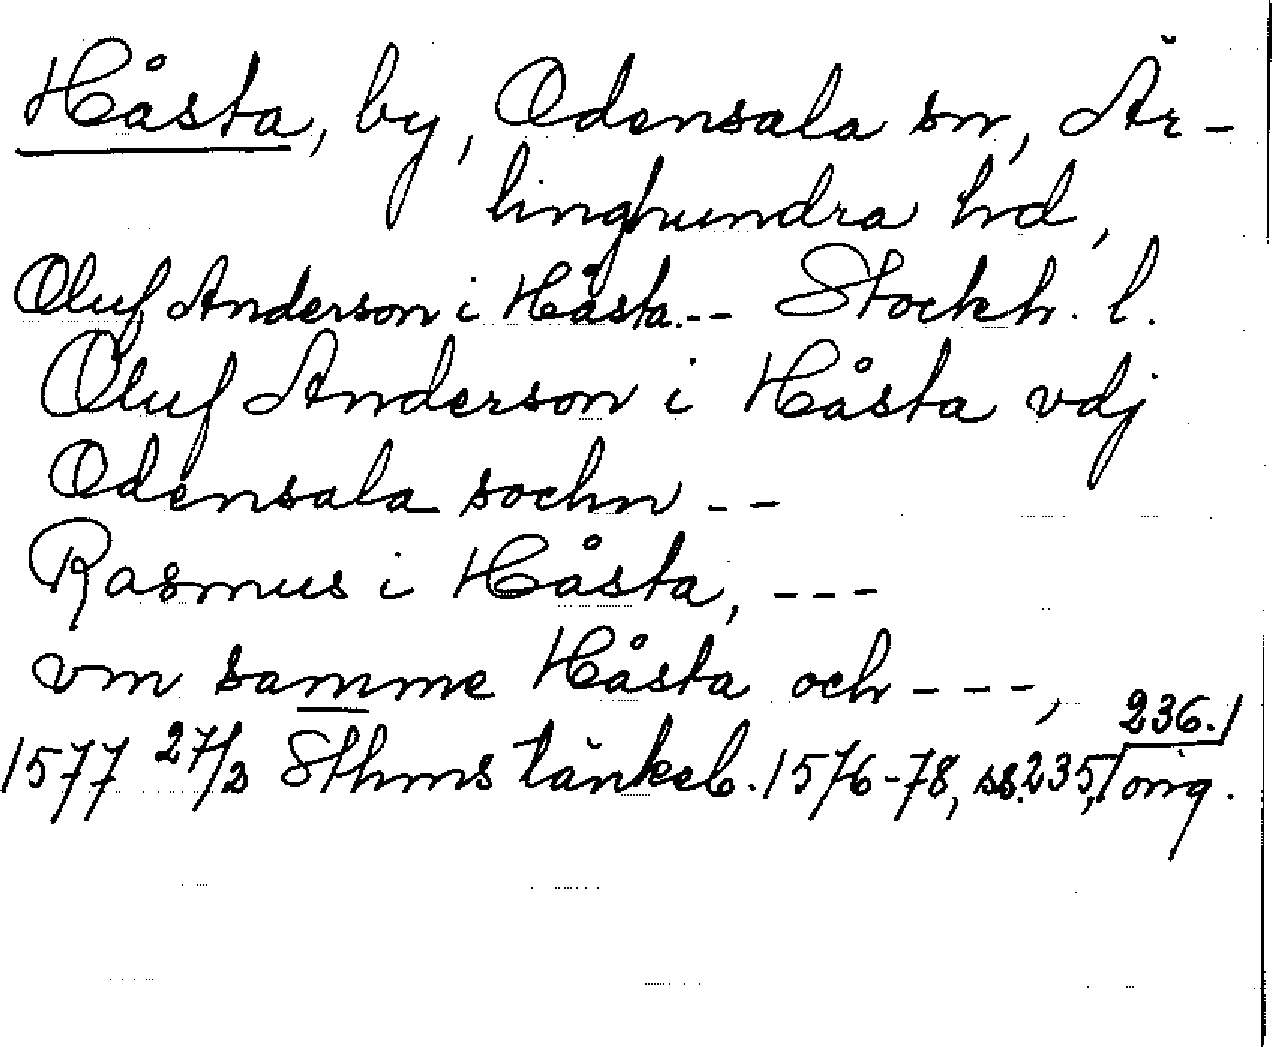 Håsta, by, Odensala sn, Är-
linghundra hd,
Oluf Anderson i Håsta.-- Stockh. l.
Oluf Anderson i Håsta vdj
Odensala sochn --
Rasmus i Håsta, ---
vm samme Håsta och ---,
236.
1577 27/2 Sthms tänkeb. 1576-78, ss. 235, orig.